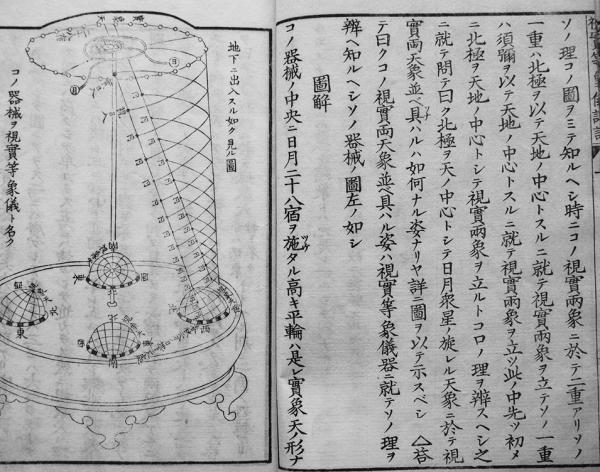 ソノ理コノ圖ヲミテ知ルヘシ時ニコノ視實兩象ニ於テ二重アリソノ
一重ハ北極ヲ以テ天地ノ中心トスルニ就テ視實兩象ヲ立テソノ一重
ハ須彌ヲ以テ天地ノ中心トスルニ就テ視實兩象ヲ立ツ此ノ中先ツ初メ
ニ北極ヲ天地ノ中心トシテ視實兩象ヲ立ルトコロノ理ヲ辨スヘシ之
ニ就テ問テ曰ク北極ヲ天ノ中心トシテ日月衆星ノ旋レル天象ニ於テ視
實兩天象並ベ具ハルハ如何ナル姿ナリヤ詳ニ圖ヲ以テ示スベシ △答
テ曰クコノ視實兩天象並ベ具ハル姿ハ視實等象儀器ニ就テソノ理ヲ
辨ヘ知ルヘシソノ器械ノ圖左ノ如シ
圖解
コノ器械ノ中央ニ日月二十八宿ヲ施タル高キ平輪ハ是レ實象天ノ形ナ
地下ニ出入スル如ク見ル圖
コノ器械ヲ視實等象儀ト名ク
日
月
東
北
西
南